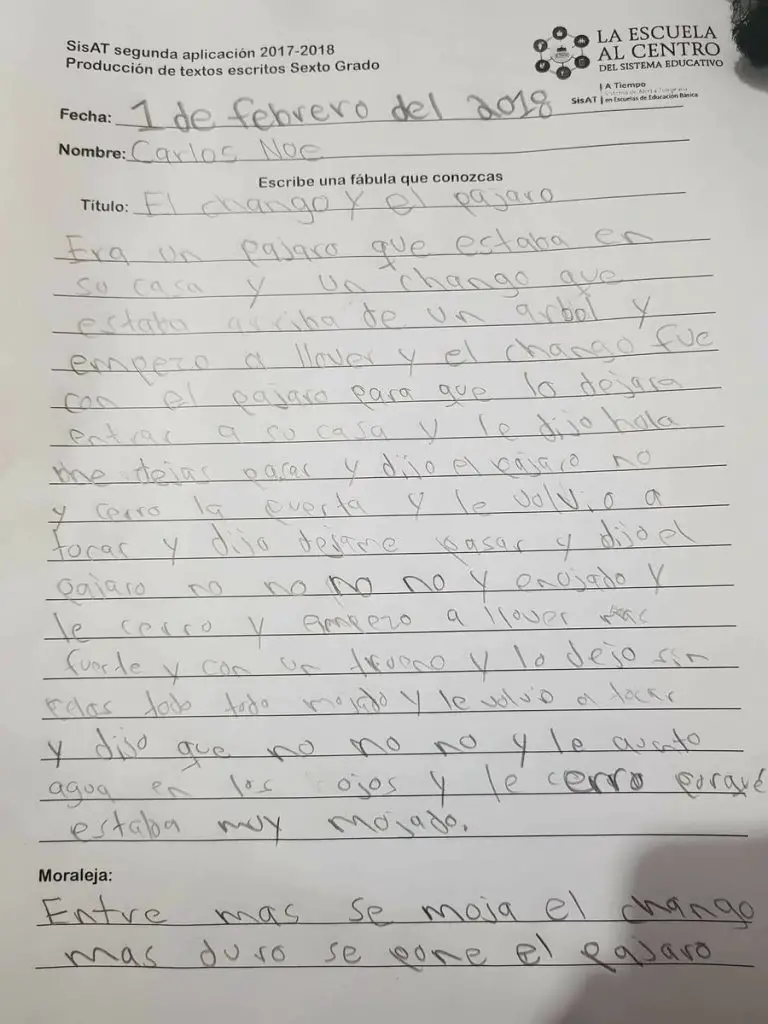 SisAT segunda aplicación 2017-2018
Producción de textos escritos Sexto Grado
LA ESCUELA
AL CENTRO
DEL SISTEMA EDUCATIVO
A Tiempo
SisAT en Escuelas de Educación Básica
Fecha: 1 de febrero del 2018
Nombre: Carlos Noe
Escribe una fábula que conozcas
Título: El chango y el pajaro
Era un pajaro que estaba en
su casa y un chango que
estaba arriba de un arbol y
empezo a llover y el chango fue
con el pajaro para que lo dejara
entrar a su casa y le dijo hola
me dejas pasar y dijo el pajaro no
y cerro la puerta y le volvio a
tocar y dijo dejame pasar y dijo el
pajaro no no no no y enojado y
le cerro y empezo a llover mas
fuerte y con un trueno y lo dejo sin
todo todo mojado y le volvio a tocar
y dijo que no no no y le
agua en los ojos y le cerro porque
estaba muy mojado.
Moraleja:
Entre mas se moja el chango
mas duro se pone el pajaro